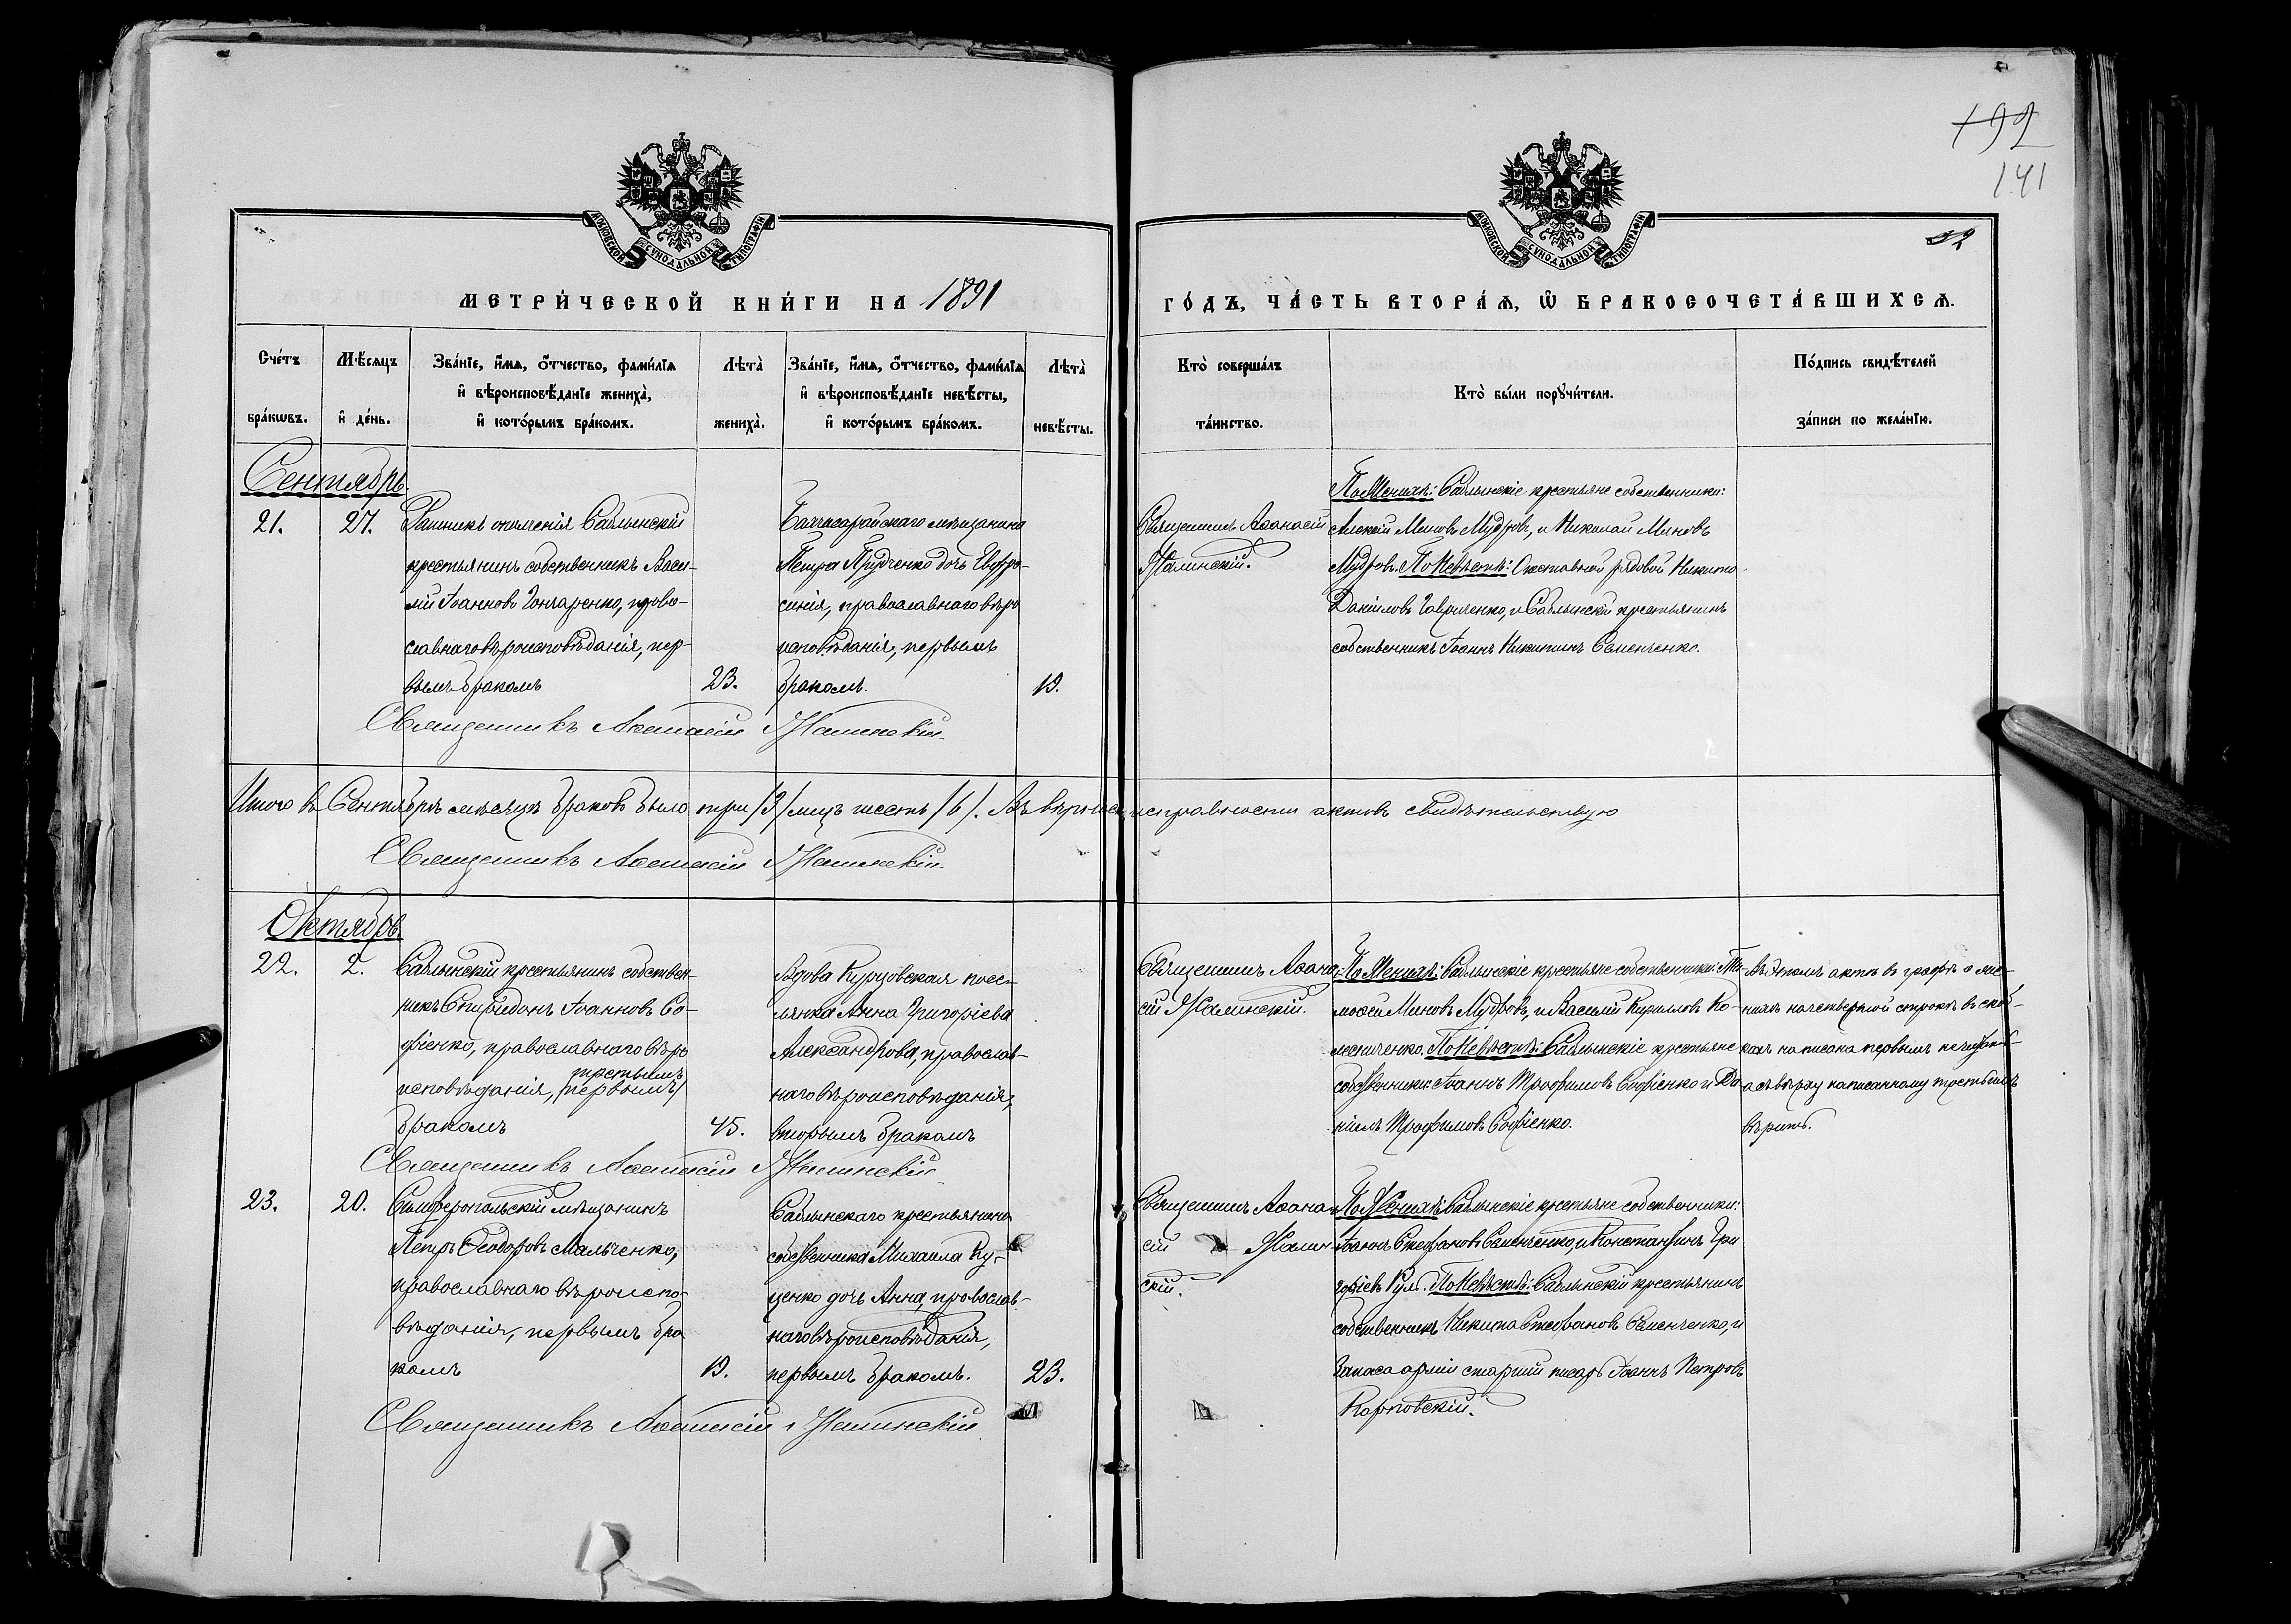 192
141
32
МОСКОВСКОЙ СѴНОДАЛЬНОЙ ТИПОГРАФІИ
МОСКОВСКОЙ СѴНОДАЛЬНОЙ ТИПОГРАФІИ
МЕТРИ́ЧЕСКОЙ КНИ́ГИ НА 1891
ГО́ДЪ, ЧА́СТЬ ВТОРА́Я, Ѡ҆ БРАКОСОЧЕТА́ВШИХСЯ.
Сче́тъ бра́кѡвъ.
Мѣ́сяцъ и҆ де́нь.
Зва́нїе, и҆́мя, ѻ҆́тчество, фами́лїя
и҆ вѣроисповѣ́данїе жениха̀,
и҆ кото́рымъ бра́комъ.
Лѣта̀ жениха̀.
Зва́нїе, и҆́мя, ѻ҆́тчество, фами́лїя
и҆ вѣроисповѣ́данїе невѣ́сты,
и҆ кото́рымъ бра́комъ.
Лѣта̀ невѣ́сты.
Кто̀ соверша́лъ та́инство.
Кто̀ бы́ли порꙋчи́тели.
По́дпись свидѣ́телей за́писи по жела́нїю.
Сентябрь.
21.
27.
Ратникъ ополченія Саблынскій
крестьянинъ собственникъ Васи-
лій Іоанновъ Гончаренко, право-
славнаго вѣроисповѣданія, пер-
вымъ бракомъ
23.
Бахчисарайскаго мѣщанина
Петра Прудченко дочь Евфро-
синія, православнаго вѣро
исповѣданія, первымъ
бракомъ.
19.
Священникъ Аѳанасій
Жалинскій.
По Женихѣ: Саблынскіе крестьяне собственники:
Алексій Миновъ Мудровъ, и Николай Миновъ
Мудровъ. По Невѣстѣ: Отставной рядовой Никита
Даніиловъ Гавриченко, и Саблынскій крестьянинъ
собственникъ Іоаннъ Никитинъ Семенченко.
Священникъ Аѳанасій Жалинскій.
Итого въ Сентябрѣ мѣсяцѣ браковъ было три /3/ лицъ шесть /6/. Въ вѣрности исправности актовъ свидѣтельствую
Священникъ Аѳанасій Жалинскій.
Октябрь.
22.
2.
Саблынскій крестьянинъ собствен-
никъ Спиридонъ Іоанновъ Со-
фіенко, православнаго вѣро
третьимъ
исповѣданія, /первымъ/
бракомъ
45.
Вдова Курцовская посе-
лянка Анна Григоріева
Александрова, православ-
наго вѣроисповѣданія,
вторымъ бракомъ
Священникъ Аѳана-
сій Жалинскій.
По Женихѣ: Саблынскіе крестьяне собственники: Ти-
моѳей Миновъ Мудровъ, и Василій Кирилловъ Ко-
лесниченко. По Невѣстѣ: Саблынскіе крестьяне
собственники: Іоаннъ Трофимовъ Софіенко и Да-
ніилъ Трофимовъ Софіенко.
Въ этомъ актѣ въ графѣ о же-
нихѣ на четвертой строкѣ въ скоб-
кахъ написано первымъ не читать
а сверху написанному третьимъ
вѣрить.
Священникъ Аѳанасій Жалинскій
23.
20.
Симферопольскій мѣщанинъ
Петръ Ѳеодоровъ Мальченко,
православнаго вѣроиспо-
вѣданія, первымъ бра
комъ
19.
Саблынскаго крестьянина
собственника Михаила Ку-
ценко дочь Анна, православ-
наго вѣроисповѣданія,
первымъ бракомъ.
23.
Священникъ Аѳана-
сій Жалин-
скій.
По Женихѣ: Саблынскіе крестьяне собственники:
Іоаннъ Стефановъ Семенченко, и Константинъ Гри
горіевъ По Невѣстѣ: Саблынскій крестьянинъ
собственникъ Никита Стефановъ Семенченко, и
запаса арміи старшій писарь Іоаннъ Петровъ
Карповскій.
Священникъ Аѳанасій Жалинскій